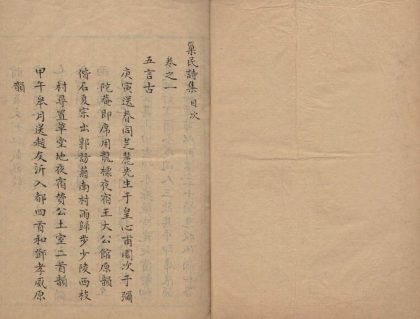 巢民詩集 目次
卷之一
五言古
庚寅送春同芝麓先生于皇心甫園次于彌
陀庵即席用龍標夜宿王大公館原韻
偕石夏宗出郭訪菊南村雨歸步少陵西枝
村尋置草堂地夜宿贊公土室二首韻
甲午皋月送趙友沂入都四首和鄧孝威原
韻